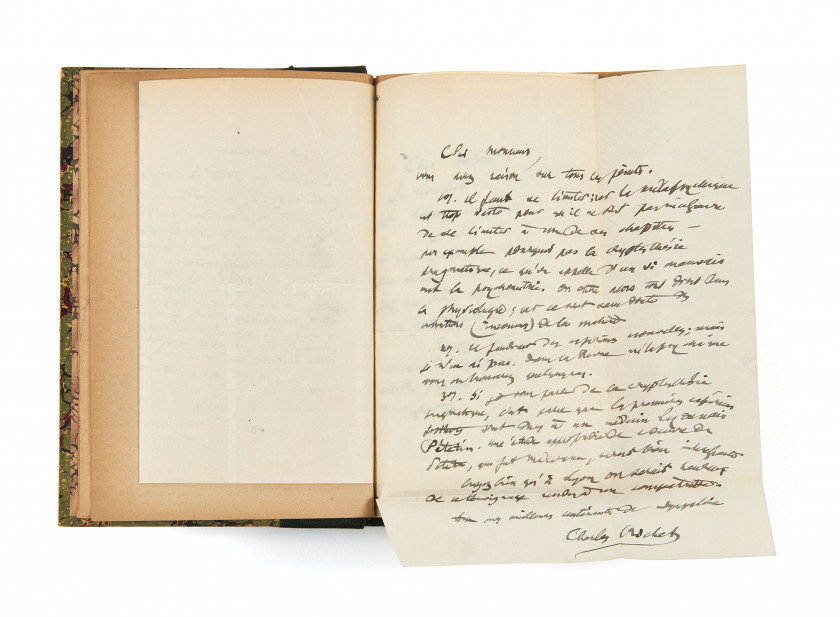 Cher monsieur,
vous avez raison sur tous ces points.
1o). Il faut se limiter; car la métapsychique
est trop vaste pour qu'il ne soit pas nécessaire
de se limiter à un de ses chapitres —
par exemple pourquoi pas la cryptesthésie
pragmatique, ce qu'on appelle d'un si mauvais
mot la psychométrie. On entre alors tout droit dans
la physiologie; car ce sont sans doute des
vibrations (inconnues) de la matière
2o). Il faudrait des expériences nouvelles; mais
je n'en ai pas. Dans ce thème métapsychique
vous en trouverez quelques unes.
3o). Si je vous parle de la cryptesthésie
pragmatique, c'est parce que les premières expériences
sont dues à un médecin lyonnais
Pételin. Une étude approfondie de l'oeuvre de
Pételin, qui fut méconnu, serait bien intéressante
Croyez bien qu'à Lyon on serait heureux
de ce témoignage rendu à un compatriote
avec mes meilleurs sentiments de sympathie
Charles Richet